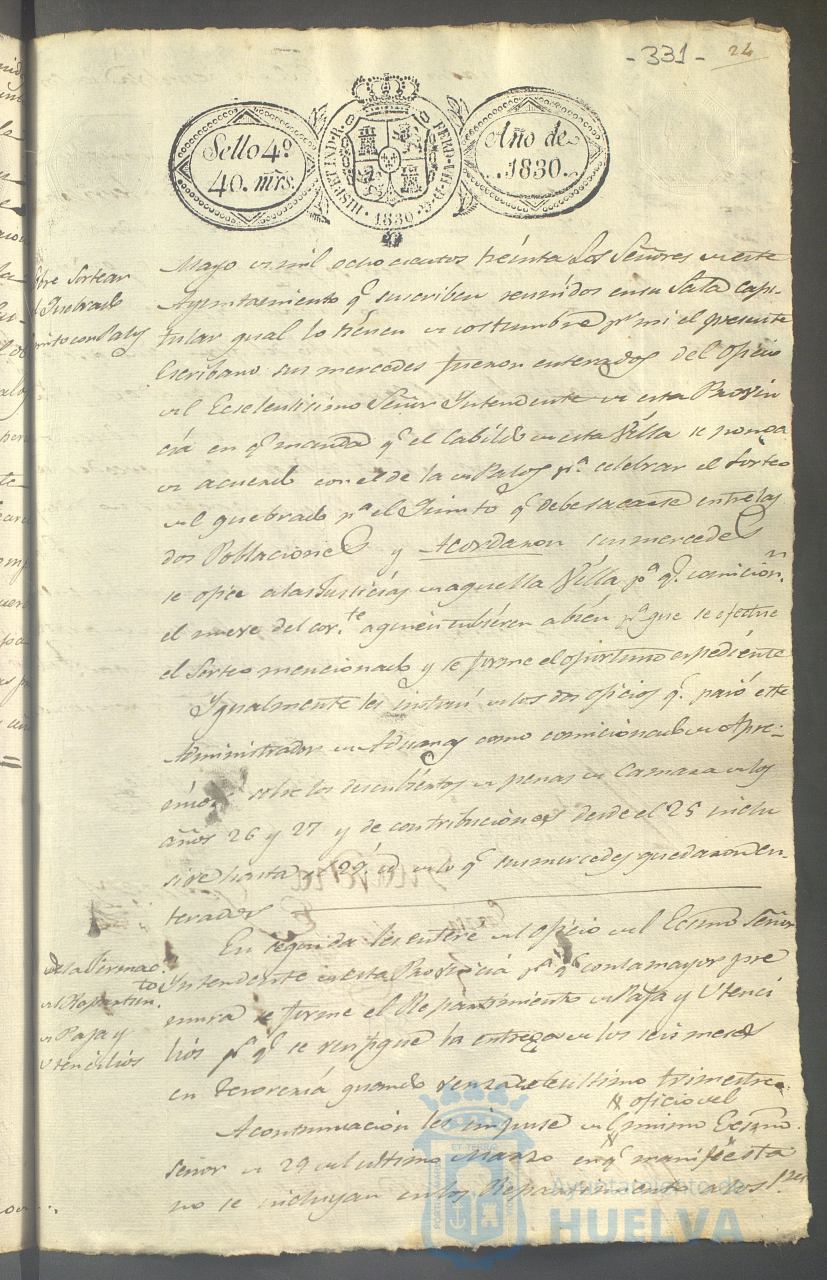 -331- 24
Sello 4º
40. mrs.
HISP. ET IND. R. FERD. VII. D. G. 1830
Año de
1830.
Mayo de mil ochocientos treinta Los Señores de este
Ayuntamiento q.e suscriben reunidos en su Sala capi-
tular qual lo tienen de costumbre p.r mi el presente
Escribano sus mercedes fueron enterados del oficio
del Ecselentisimo Señor Yntendente de esta Provin
cia en q.e manda q.e el Cabildo de esta Villa se ponga
de acuerdo con el de la de Palos p.a celebrar el Sorteo
del quebrado p.a el Quinto q.e debe sacarse entre las
dos Poblaciones y Acordaron sus mercedes
se oficie a las Justicias de aquella Villa p.a q.e comicion.n
el nueve del cor.te a quien tubieren a bien p.a que se efectue
el Sorteo mencionado y se forme el oportuno expediente
Ygualmente les instruí de los dos oficios q.e pasó este
Administrador de Aduanas como comicionado de Apre-
mios sobre los descubiertos de penas de Camara de los
años 26 y 27 y de contribuciones desde el 25 inclu
sive hasta el 29 de lo q.e sus mercedes quedaron en-
terados
En seguida les enteré del oficio del Ecsmo Señor
Yntendente de esta Provincia p.a q.e con la mayor pre
mura se forme el Repartimiento de Paja y Utenci
lios p.a q.e se verifique la entrega de los seis meses
en Tesoreria quando venza este ultimo trimestre.
A continuacion les impuse del mismo Ecsmo.
oficio del
Señor de 29 del ultimo Marzo en q.e manifiesta
no se incluyan en los Repartimientos a los
Sobre Sortear
el Quebrado
Quinto con Palos
De la Formac.n
del Repartim.to
de Paja y
Utencilios
Ayuntamiento de
HUELVA